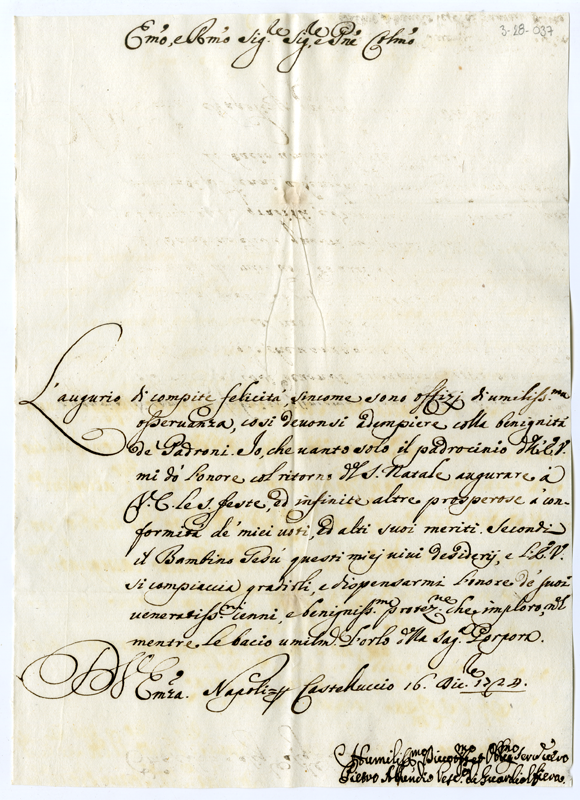 3-28-037
Emo, e Rmo Sig.re Sig.re, e Pne Colmo
L'augurio di compite felicità, sincome sono offizj di umiliss.ma
osseruanza, così deuonsi adempiere colla benignità
de' Padroni. Io, che uanto solo il padrocinio dell'E.V.
mi dò l'onore col ritorno del S. Natale augurare à
V.E. le S. feste, ed infinite altre prosperose à con-
formità de' miei uoti, ed alti suoi meriti. Secondi
il Bambino Gesù questi miej uiui desiderij, e l'E.V.
si compiaccia gradirli, e dispensarmi l'onore de' suoi
ueneratiss.mi cenni, e benigniss.ma protez.ne che imploro, nel
mentre le bacio umilm.e l'orlo della Sag.a Porpora.
Di V.ra Emza. Napoli Castelluccio 16. Dic.re 1724.
Humiliss.mo Deuotiss.mo Oblig.mo Seruidore
Pietro Vesc.o di Guardialfiera.